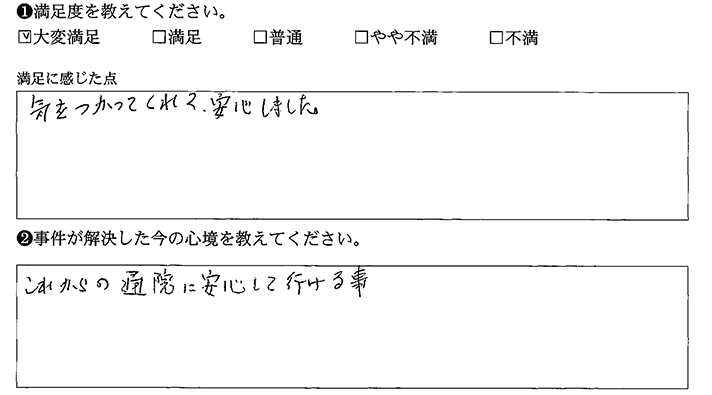 ❶満足度を教えてください。
☑大変満足 □満足 □普通 □やや不満 □不満
満足に感じた点
気をつかってくれて、安心しました。
❷事件が解決した今の心境を教えてください。
これからの通院に安心して行ける事